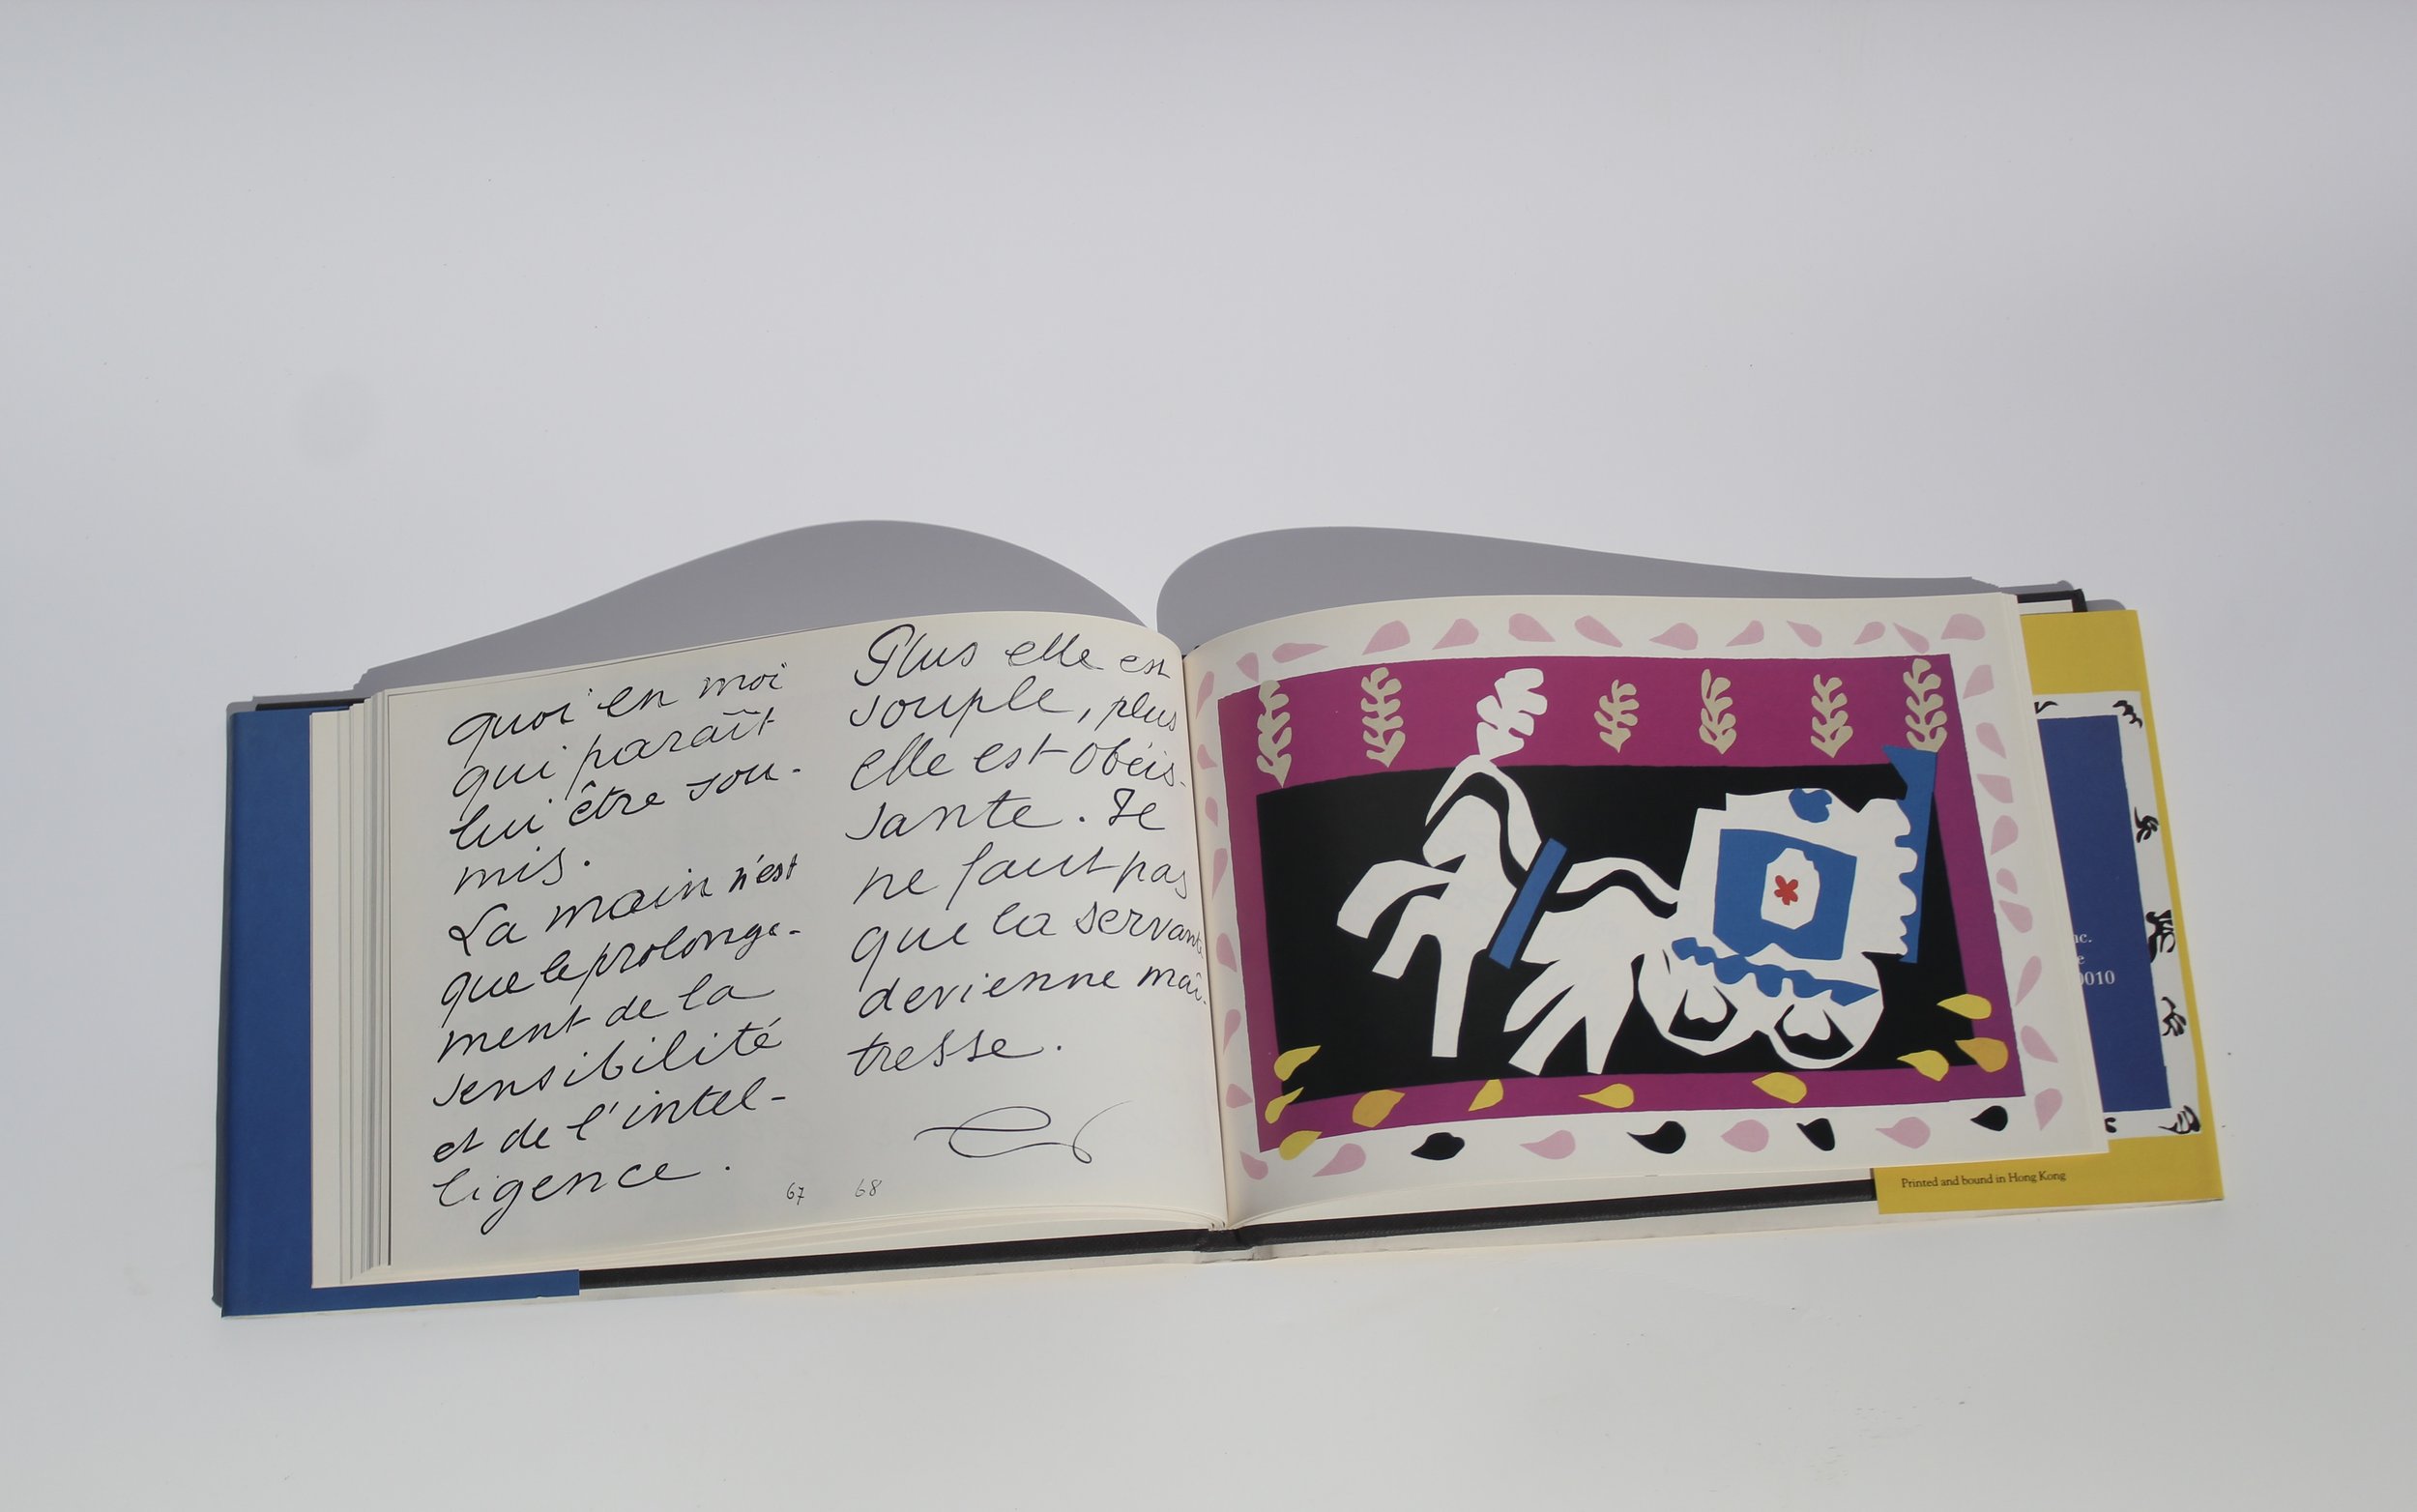 quoi en moi
qui paraît
lui être sou-
mis.
La main n'est
que le prolonge-
ment de la
sensibilité
et de l'intel-
ligence.
67
Plus elle est
souple, plus
elle est obéis-
sante. Il
ne faut pas
que la servante
devienne maî-
tresse.
68
nc.
e
0010
Printed and bound in Hong Kong